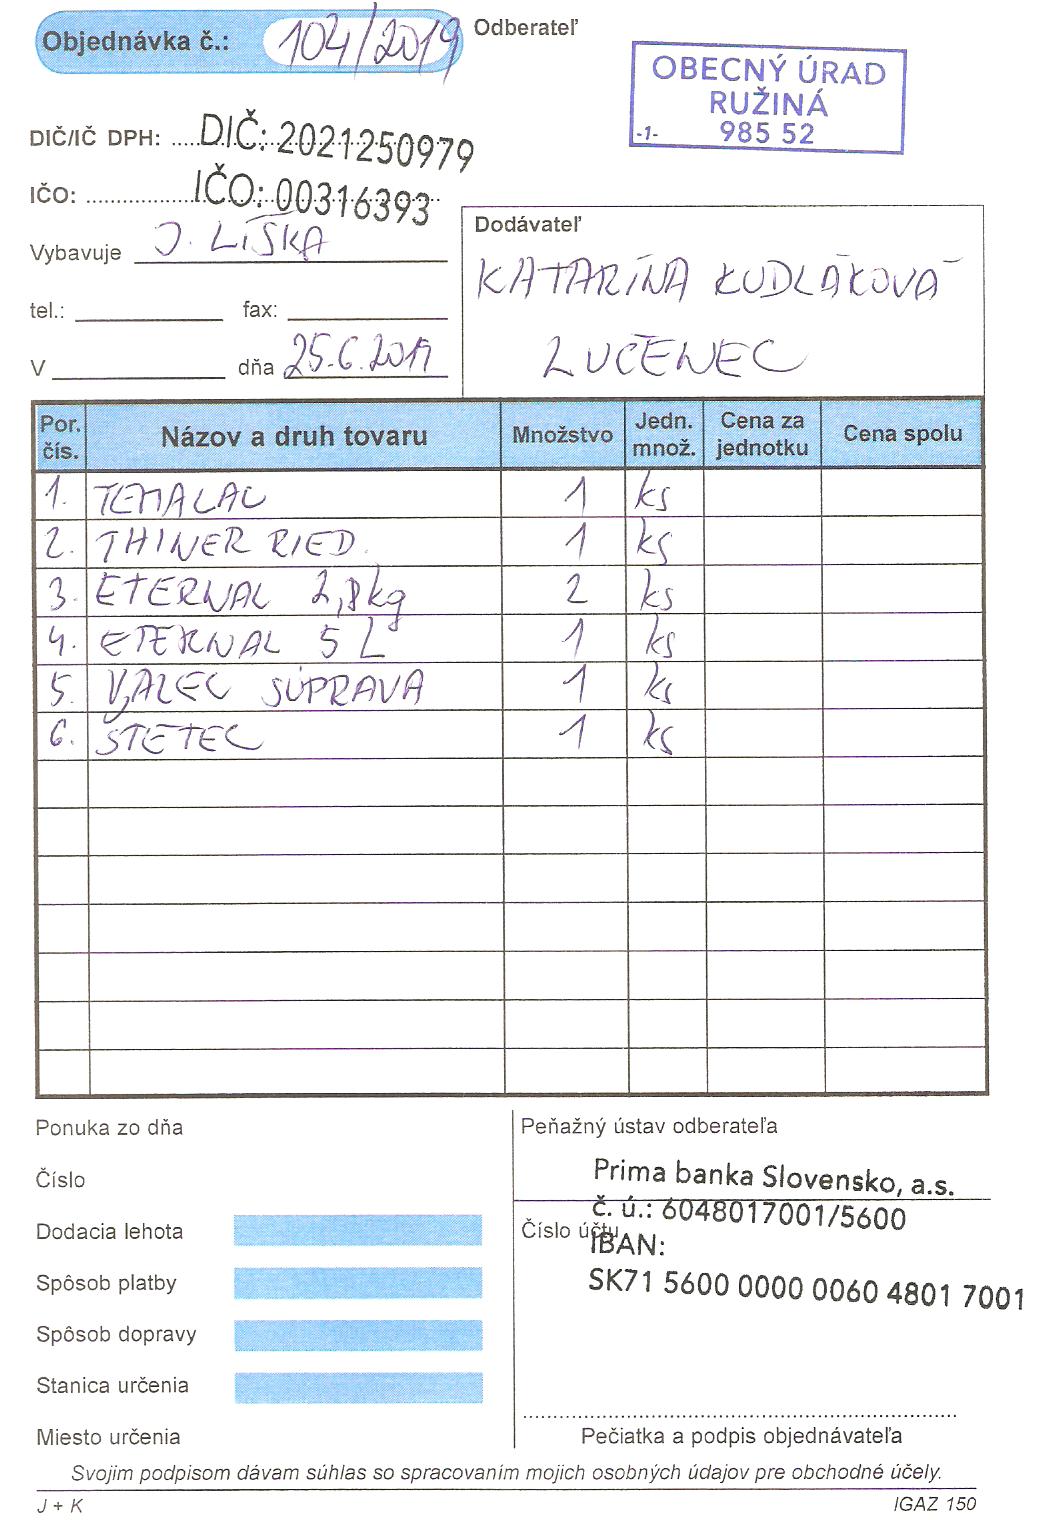 Objednávka č.: 104/2019
Odberateľ
OBECNÝ ÚRAD
RUŽINÁ
-1- 985 52
DIČ/IČ DPH: DIČ: 2021250979
IČO: IČO: 00316393
Vybavuje J. LÍŠKA
tel.: fax:
V dňa 25.6.2019
Dodávateľ
KATARÍNA KUDLÁKOVÁ
LUČENEC
Por. čís. Názov a druh tovaru Množstvo Jedn. množ. Cena za jednotku Cena spolu
1. TEMALAC 1 ks
2. THINER RIED. 1 ks
3. ETERNAL 2,8kg 2 ks
4. ETERNAL 5 L 1 ks
5. VALEC SÚPRAVA 1 ks
6. STETEC 1 ks
Ponuka zo dňa
Číslo
Dodacia lehota
Spôsob platby
Spôsob dopravy
Stanica určenia
Miesto určenia
Peňažný ústav odberateľa
Prima banka Slovensko, a.s.
č. ú.: 6048017001/5600
Číslo účtu
IBAN:
SK71 5600 0000 0060 4801 7001
Pečiatka a podpis objednávateľa
Svojim podpisom dávam súhlas so spracovaním mojich osobných údajov pre obchodné účely.
J + K IGAZ 150